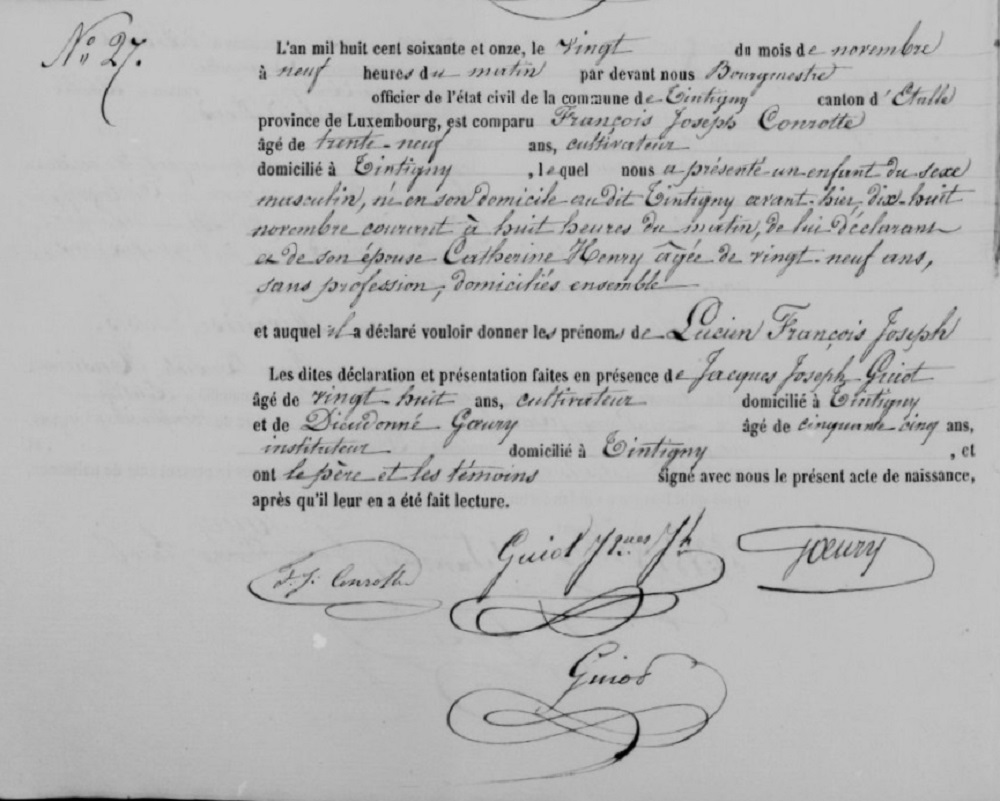 No 27.
L'an mil huit cent soixante et onze, le vingt du mois de novembre
à neuf heures du matin par devant nous Bourgmestre
officier de l'état civil de la commune de Tintigny canton d'Etalle
province de Luxembourg, est comparu François Joseph Conrotte
âgé de trente-neuf ans, cultivateur
domicilié à Tintigny, lequel nous a présenté un enfant du sexe
masculin, né en son domicile au dit Tintigny avant-hier, dix-huit
novembre courant à huit heures du matin, de lui déclarant
et de son épouse Catherine Henry âgée de vingt-neuf ans,
sans profession, domiciliés ensemble
et auquel il a déclaré vouloir donner les prénoms de Lucien François Joseph
Les dites déclaration et présentation faites en présence de Jacques Joseph Guiot
âgé de vingt-huit ans, cultivateur domicilié à Tintigny
et de Dieudonné Goeury âgé de cinquante cinq ans,
instituteur domicilié à Tintigny, et
ont le père et les témoins signé avec nous le présent acte de naissance,
après qu'il leur en a été fait lecture.
F. J. Conrotte Guiot Jques Jh Goeury
Guiot